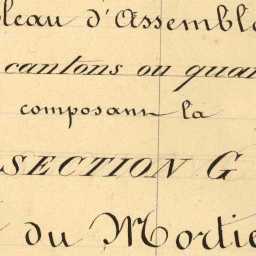 leau d'Assembla
cantons ou quar
composant la
SECTION G
du Mortie